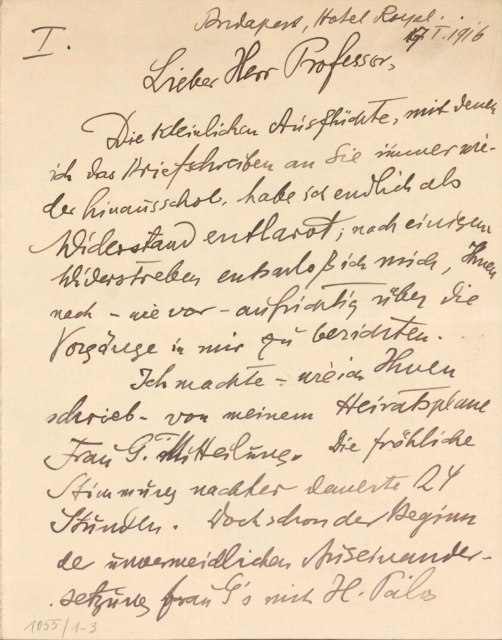 Budapest, Hotel Royal.
I. 17. I. 1916
Lieber Herr Professor,
Die kleinlichen Ausflüchte, mit denen
ich das Briefschreiben an Sie immer wie-
der hinausschob, habe ich endlich als
Widerstand entlarvt; nach einigem
Widerstreben entschloß ich mich, Ihnen
nach - wie vor - aufrichtig über die
Vorgänge in mir zu berichten.
Ich machte - wie ich Ihnen
schrieb - von meinem Heiratsplane
Frau G. Mitteilung. Die fröhliche
Stimmung nachher dauerte 24
Stunden. Doch schon der Beginn
der unvermeidlichen Auseinander-
setzung Frau G's mit H. Pálos
1055/1-3